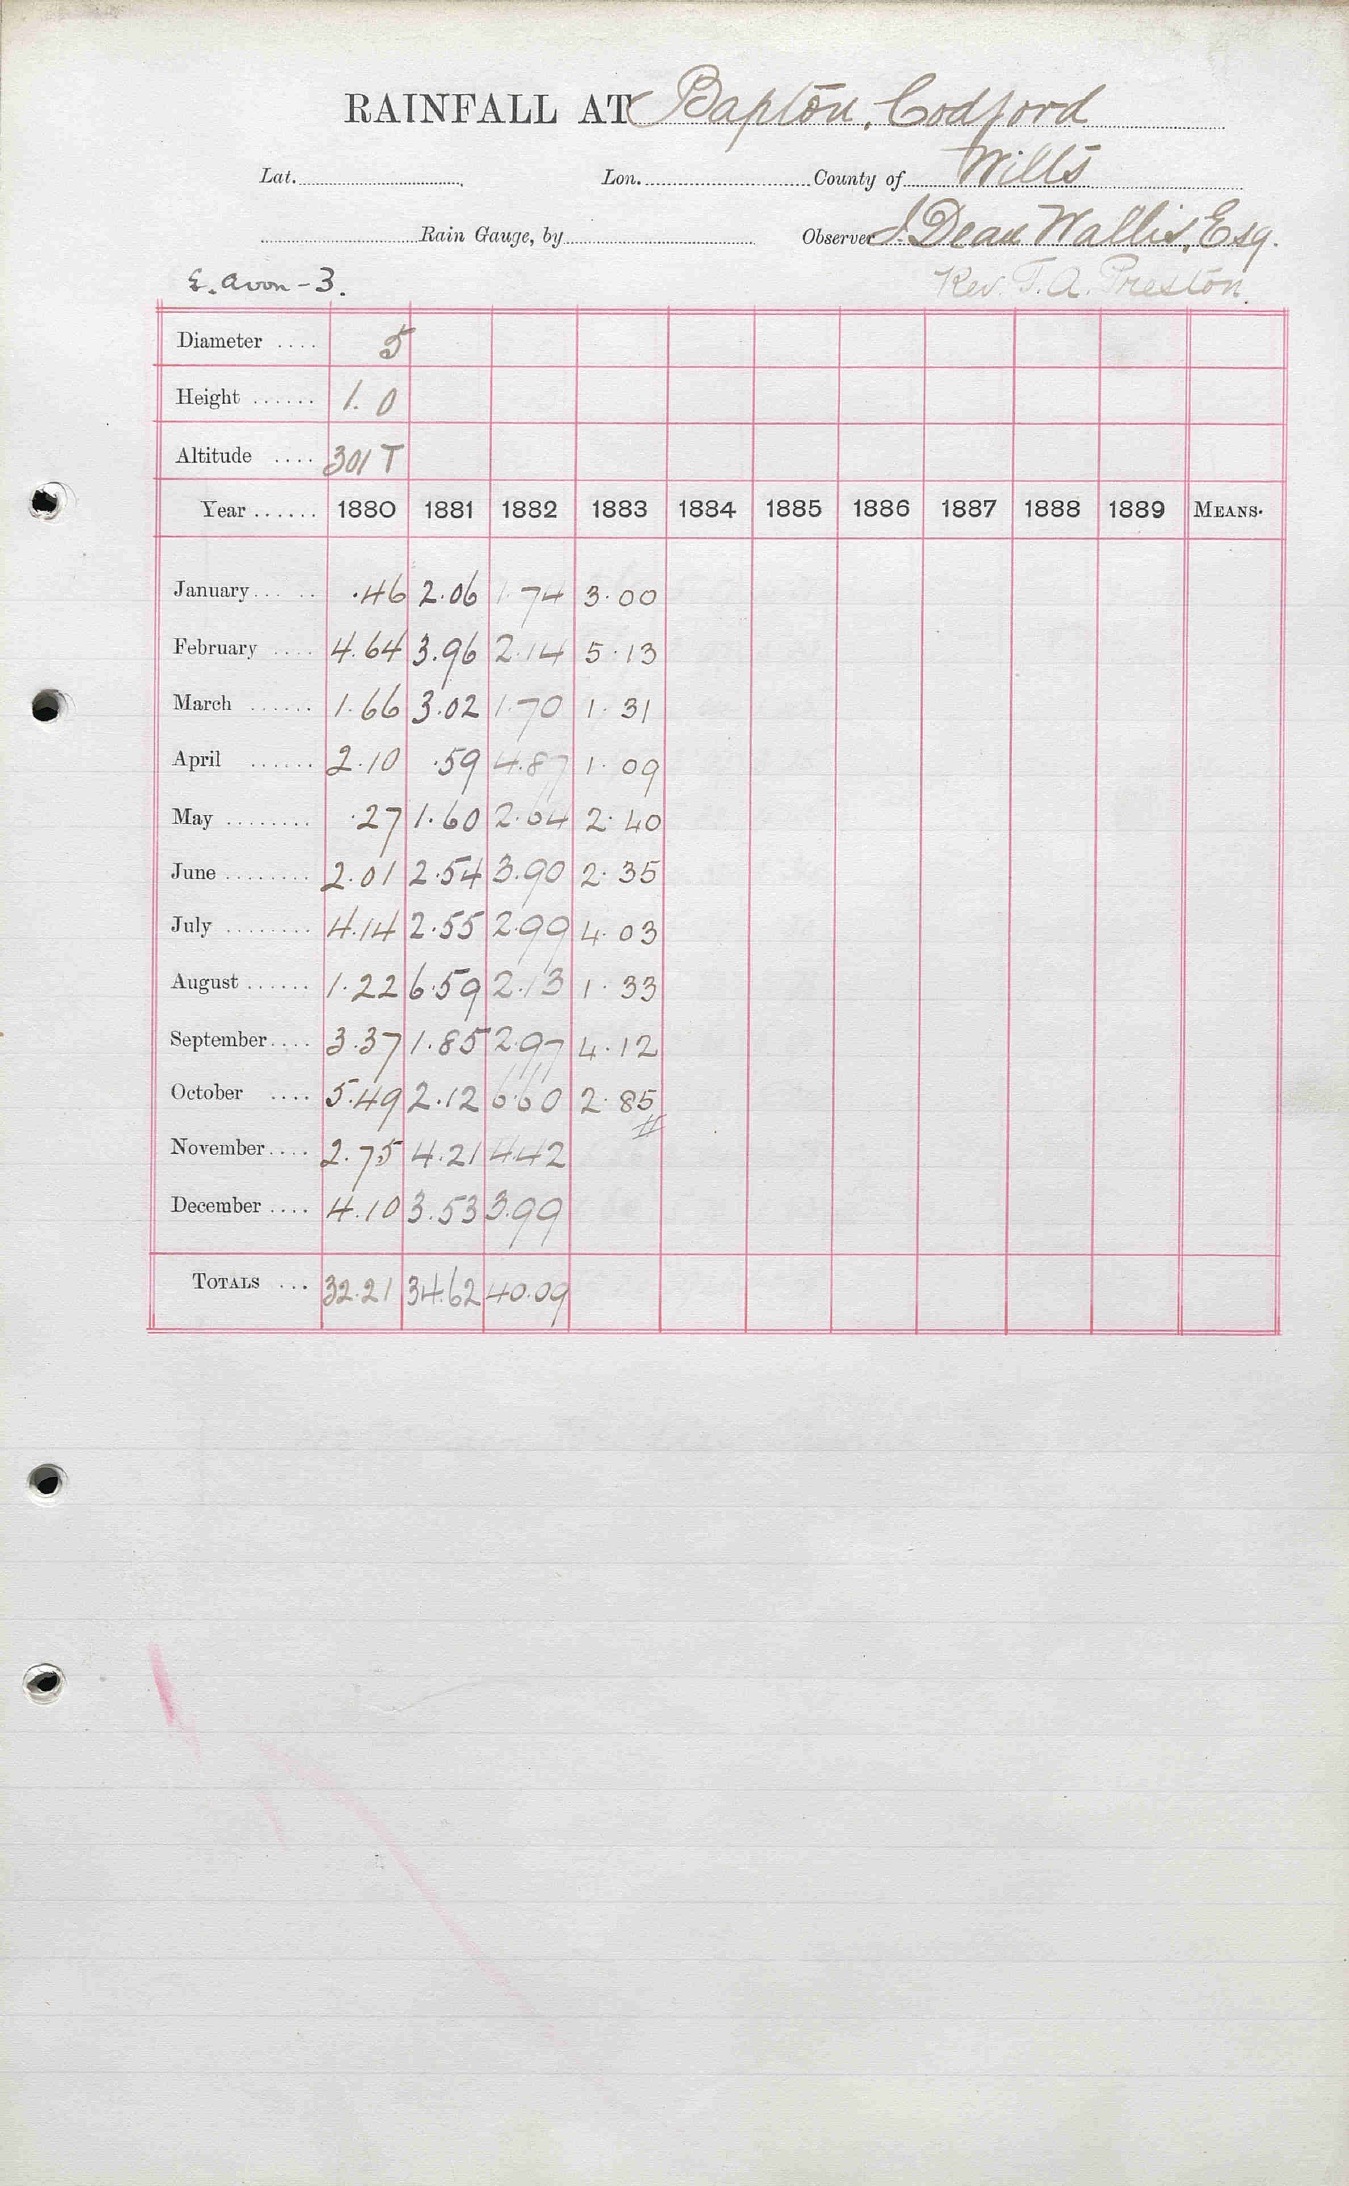 RAINFALL AT Bapton, Codford
Lat. Lon. County of Wilts
Rain Gauge, by Observer J. Dean Wallis, Esq.
E. Avon - 3. Rev. T. A. Preston.
Diameter .... 5
Height ...... 1. 0
Altitude .... 301 T
Year ...... 1880 1881 1882 1883 1884 1885 1886 1887 1888 1889 MEANS.
January ·46 2.06 1.74 3.00
February .... 4.64 3.96 2.14 5.13
March ...... 1.66 3.02 1.70 1.31
April ...... 2.10 ·59 4.87 1.09
May ........ ·27 1.60 2.64 2.40
June ........ 2.01 2.54 3.90 2.35
July ........ 4.14 2.55 2.99 4.03
August ...... 1.22 6.59 2.13 1.33
September.... 3.37 1.85 2.97 4.12
October .... 5.49 2.12 6.60 2.85
November.... 2.75 4.21 4.42
December .... 4.10 3.53 3.99
TOTALS ... 32.21 34.62 40.09